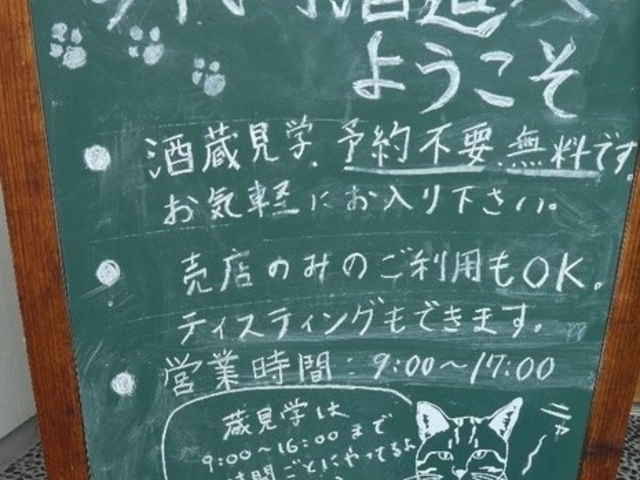 ようこそ
酒蔵見学、予約不要、無料です。
お気軽にお入り下さい。
売店のみのご利用もOK。
ティスティングもできます。
営業時間:9:00〜17:00
蔵見学は
9:00〜16:00まで
時間ごとにやってるよ
ニャ